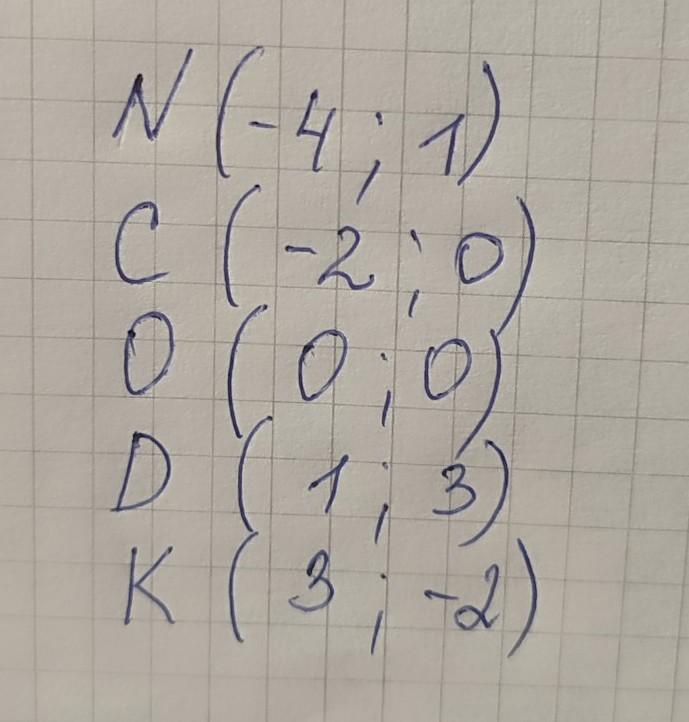 N (-4 ; 1)
C ( -2 ; 0)
O ( 0 ; 0)
D ( 1 ; 3)
K ( 3 ; -2)